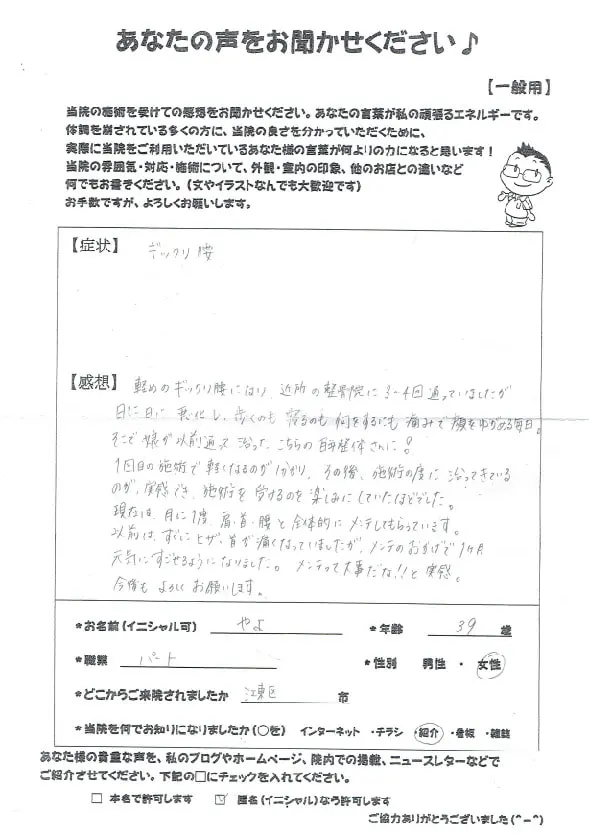 あなたの声をお聞かせください♪
【一般用】
当院の施術を受けての感想をお聞かせください。あなたの言葉が私の頑張るエネルギーです。
体調を崩されている多くの方に、当院の良さを分かっていただくために、
実際に当院をご利用いただいているあなた様の言葉が何よりの力になると思います！
当院の雰囲気・対応・施術について、外観・室内の印象、他のお店との違いなど
何でもお書きください。（文やイラストなんでも大歓迎です）
お手数ですが、よろしくお願いします。
【症状】 ギックリ腰
【感想】 軽めのギックリ腰になり、近所の整骨院に3〜4回通っていましたが
日に日に悪化し、歩くのも寝るのも何をするにも痛みで顔をゆがめる毎日。
そこで娘が以前通って治った、こちらの 整体さんに！
1回目の施術で軽くなるのが分かり、その後、施術の度に治ってきている
のが、実感でき、施術を受けるのを楽しみにしていたほどでした。
現在は、月に1度、肩・首・腰と全体的にメンテしてもらっています。
以前は、すぐにヒザ、首が痛くなっていましたが、メンテのおかげで1ヶ月
元気にすごせるようになりました。メンテって大事だな!!と実感。
今後もよろしくお願いします。
*お名前（イニシャル可） やよ *年齢 39 歳
*職業 パート *性別 男性 ・ 女性
*どこからご来院されましたか 江東区 市
*当院を何でお知りになりましたか（○を） インターネット ・チラシ ・紹介 ・看板 ・雑誌
あなた様の貴重な声を、私のブログやホームページ、院内での掲載、ニュースレターなどで
ご紹介させてください。下記の□にチェックを入れてください。
□ 本名で許可します ☑ 匿名（イニシャル）なら許可します
ご協力ありがとうございました（^－^）